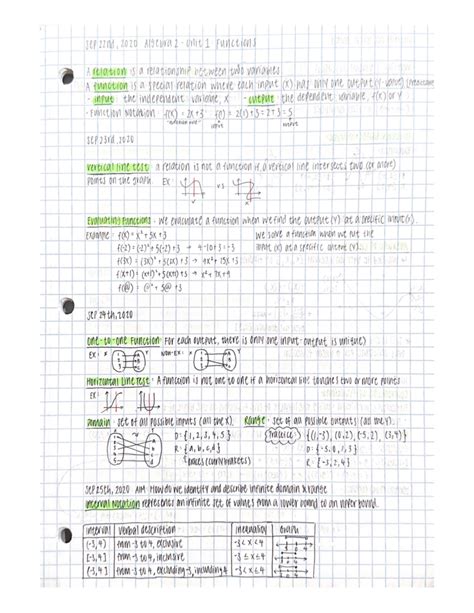 SEP 22nd, 2020 Algebra 2 - Unit 1 Functions
A relation is a relationship between two variables
A function is a special relation where each input (x) has only one output (y-value)
- input the independent variable, x - output the dependent variable, f(x) or y
- Function notation f(x) = 2x+3 f(1) = 2(1)+3 = 2+3 = 5
input
SEP 23rd, 2020
Vertical line test: a relation is not a function if a vertical line intersects two (or more)
points on the graph. EX: vs
Evaluating Functions - we evaluate a function when we find the output (y) at a specific input (x).
Example: f(x) = x²+5x+3 we solve a function when we find the
f(-2) = (-2)²+5(-2)+3 → 4-10+3 = -3 input (x) at a specific output (y).
f(3x) = (3x)²+5(3x)+3 → 9x²+15x+3
f(x+1) = (x+1)²+5(x+1)+3 → x²+7x+9
SEP 24th, 2020
One-to-one Function: For each output, there is only one input (output is unique)
EX: x y NON-EX: x y
Horizontal Line Test: A function is not one to one if a horizontal line touches two or more points
EX:
Domain - set of all possible inputs (all the x). Range - set of all possible outputs (all the y).
D: {1, 2, 3, 4, 5} Practice {(1,-3), (0,2), (-5,2), (3,4)}
R: {a, b, c, d} D: {-5, 0, 1, 3}
braces (curly brackets) R: {-3, 2, 4}
SEP 25th, 2020 AIM: How do we identify and describe infinite domain & range
Interval Notation represents an infinite set of values from a lower bound to an upper bound.
interval verbal description inequality Graph
(-3, 4) from -3 to 4, exclusive -3 < x < 4
[-3, 4] from -3 to 4, inclusive -3 ≤ x ≤ 4
(-3, 4] from -3 to 4, excluding -3, including 4 -3 < x ≤ 4